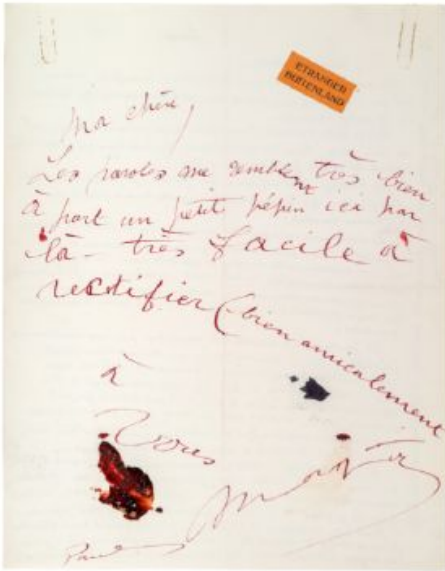 ETRANGER
BUITENLAND
Ma chère,
Les paroles me semblent très bien
à part un petit pépin ici par
là - très facile à
rectifier (bien amicalement
à
Vous